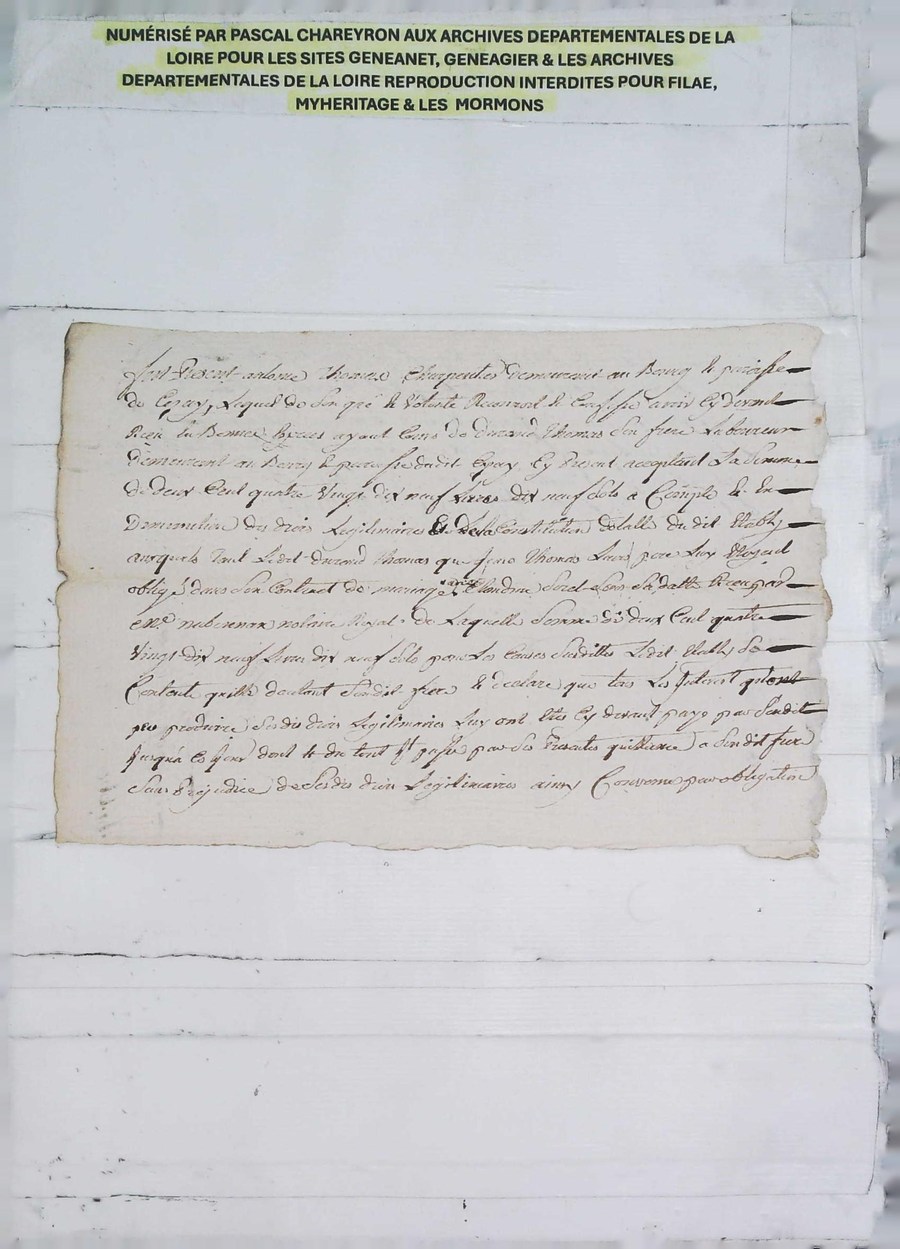 NUMÉRISÉ PAR PASCAL CHAREYRON AUX ARCHIVES DEPARTEMENTALES DE LA
LOIRE POUR LES SITES GENEANET, GENEAGIER & LES ARCHIVES
DEPARTEMENTALES DE LA LOIRE REPRODUCTION INTERDITES POUR FILAE,
MYHERITAGE & LES MORMONS
fut Present antoine thomas Charpentier demeurant au Bourg & paroisse
de Epay, Lequel de son gré & Volonté Reconnoit & Confesse avoir Cy devant
Receu En Bonnes Especes ayant Cours de durand thomas son frere Laboureur
demeurant au Bourg & paroisse dudit Epay Cy Present acceptant La Somme
de deux Cent quatre Vingt dix neuf Livres dix neuf sols a Compte & En
Diminution des droits Legitimaires Et de La Constitution dotalle dudit Etably
auxquels tant Ledit durand thomas que thomas Leurs pere Luy
obligé dans Son Contract de mariage avec Claudine Sa datte Reçeu par
me notaire Royal de Laquelle Somme de deux Cent quatre
Vingt dix neuf Livres dix neuf sols pour Les Causes Susdittes Ledit Etably Se
Contente quitte d'autant Sondit frere & declare que tous Les Interest qu'ont
peu produire Sesdits droits Legitimaires Luy ont Etés Cy devant payé par Sondit
jusqu'a Ce jour dont & du tout Il passe par Ses Presentes quittance a Sondit frere
Sans Préjudice de Sesdits droits Legitimaires ainsy Convenu par obligation